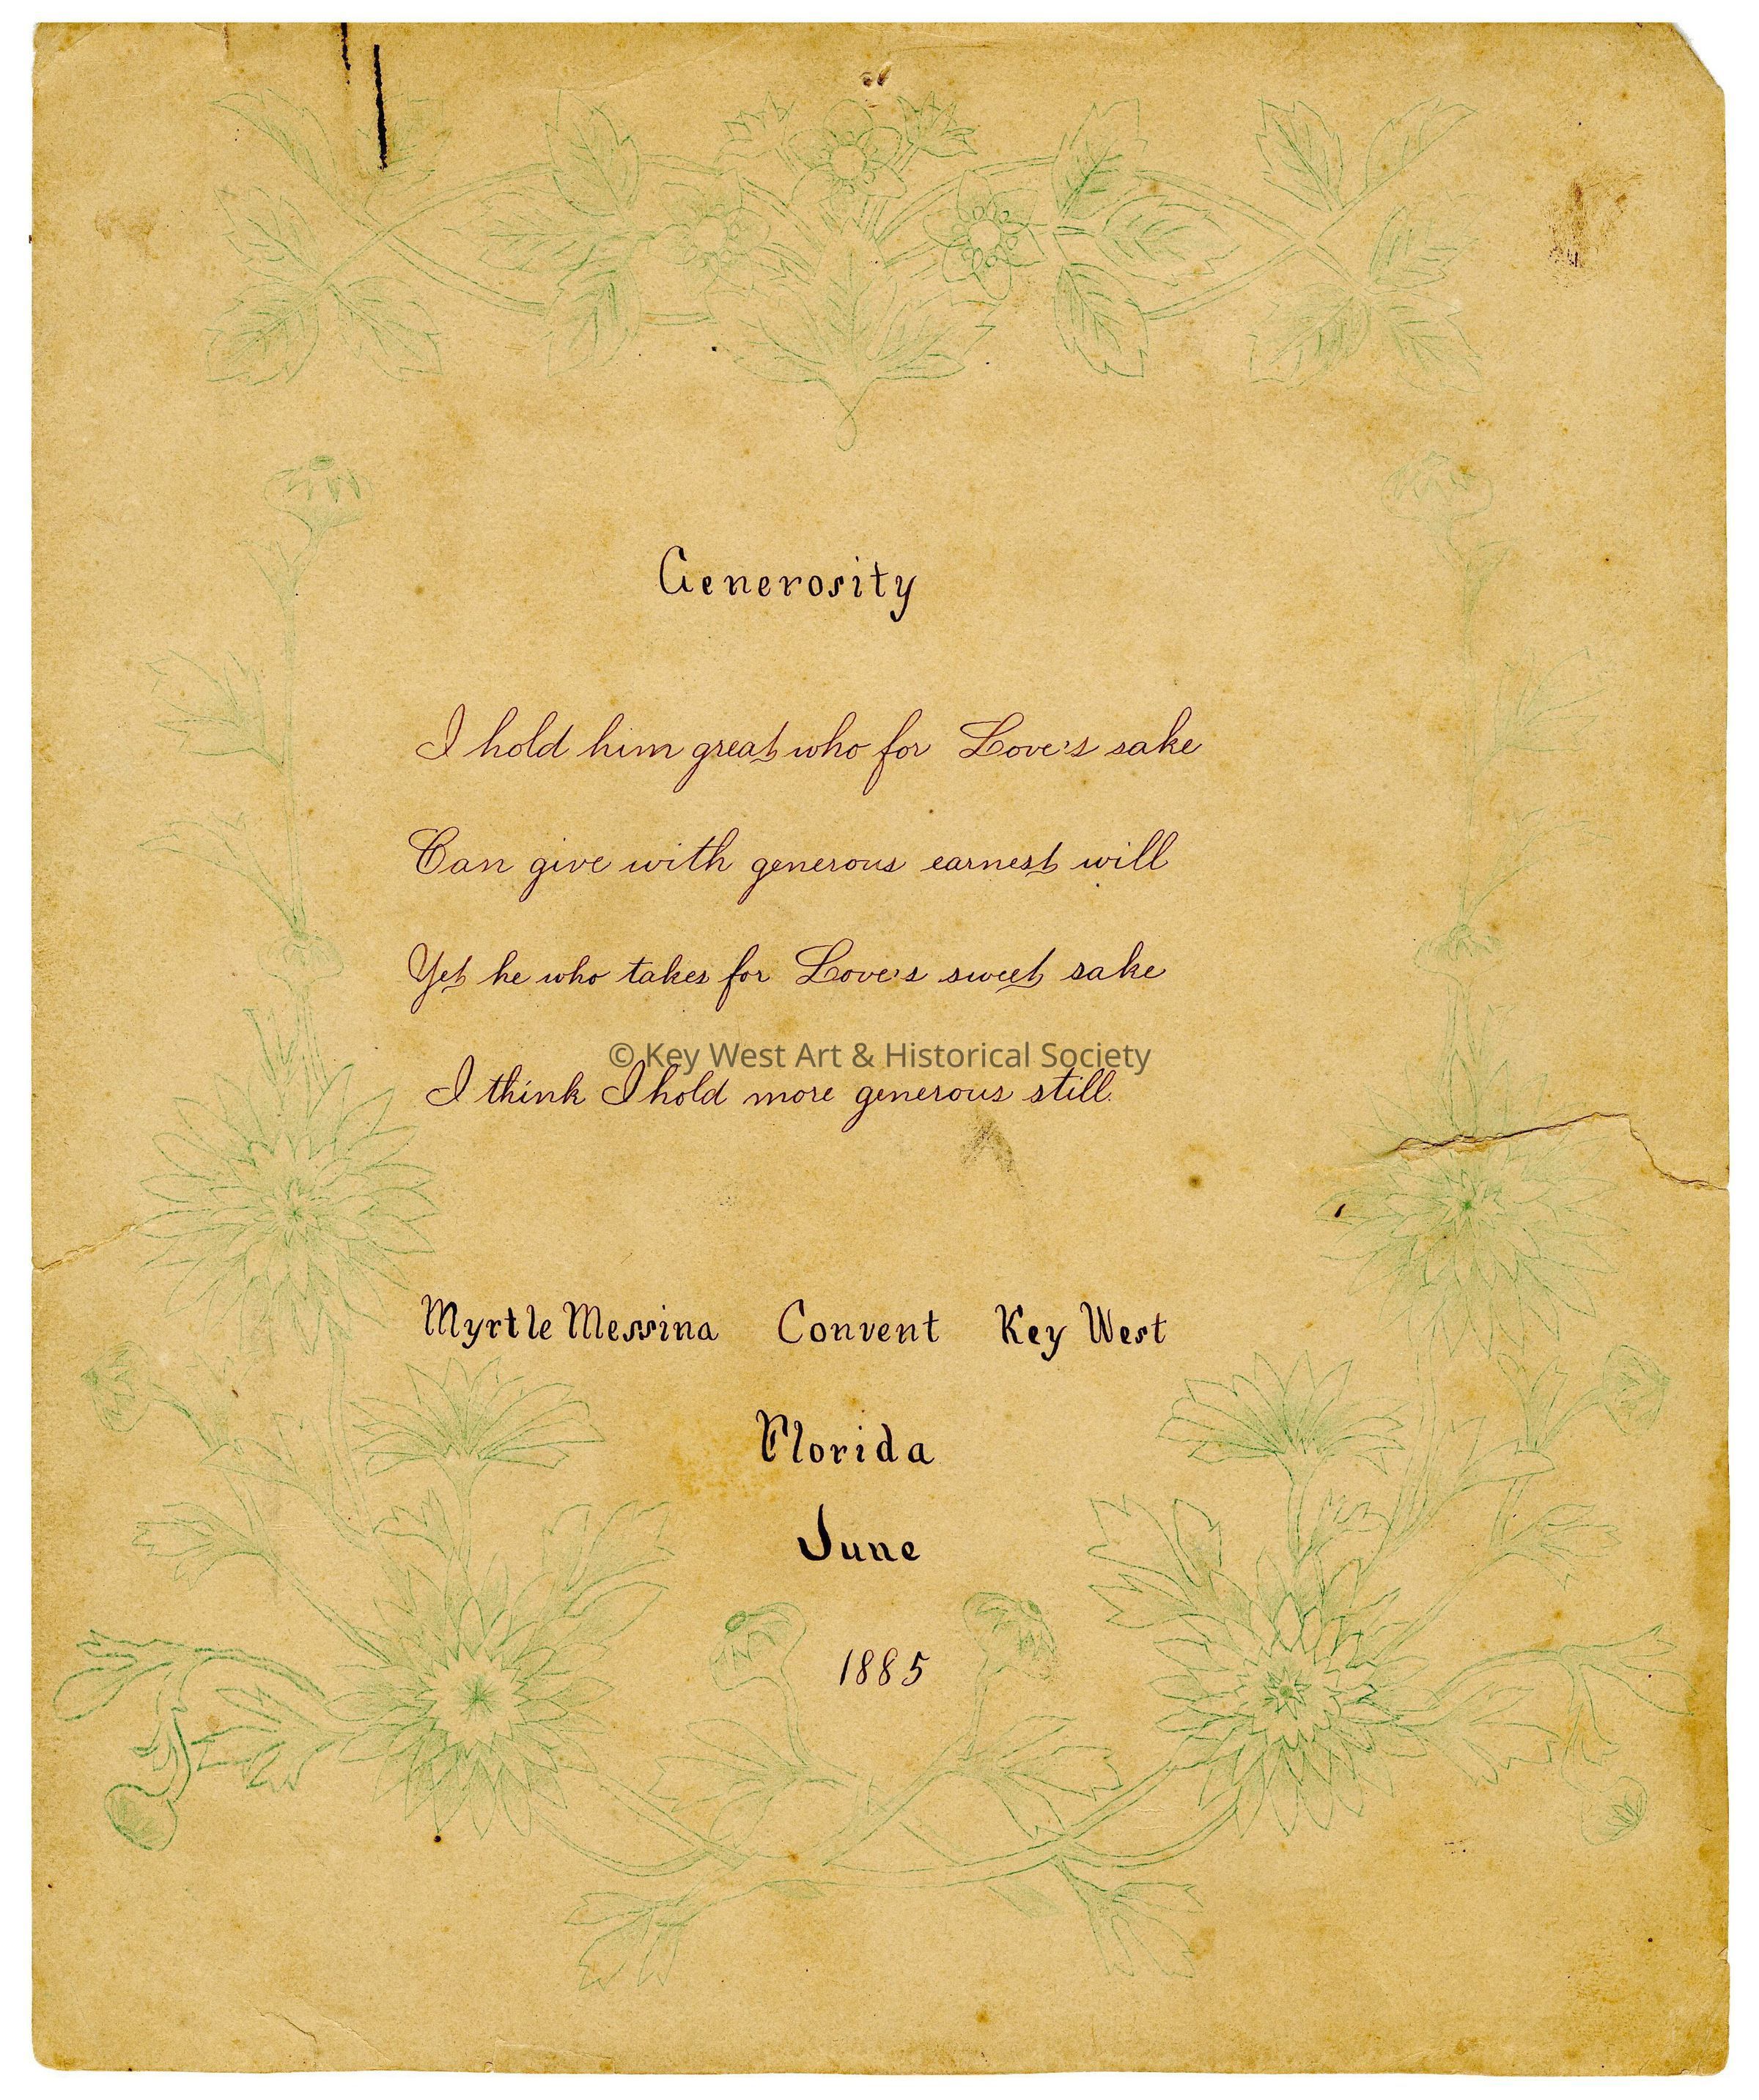 Generosity
I hold him great who for Love's sake
Can give with generous earnest will
Yet he who takes for Love's sweet sake
© Key West Art & Historical Society
I think I hold more generous still.
Myrtle Messina Convent Key West
Florida
June
1885